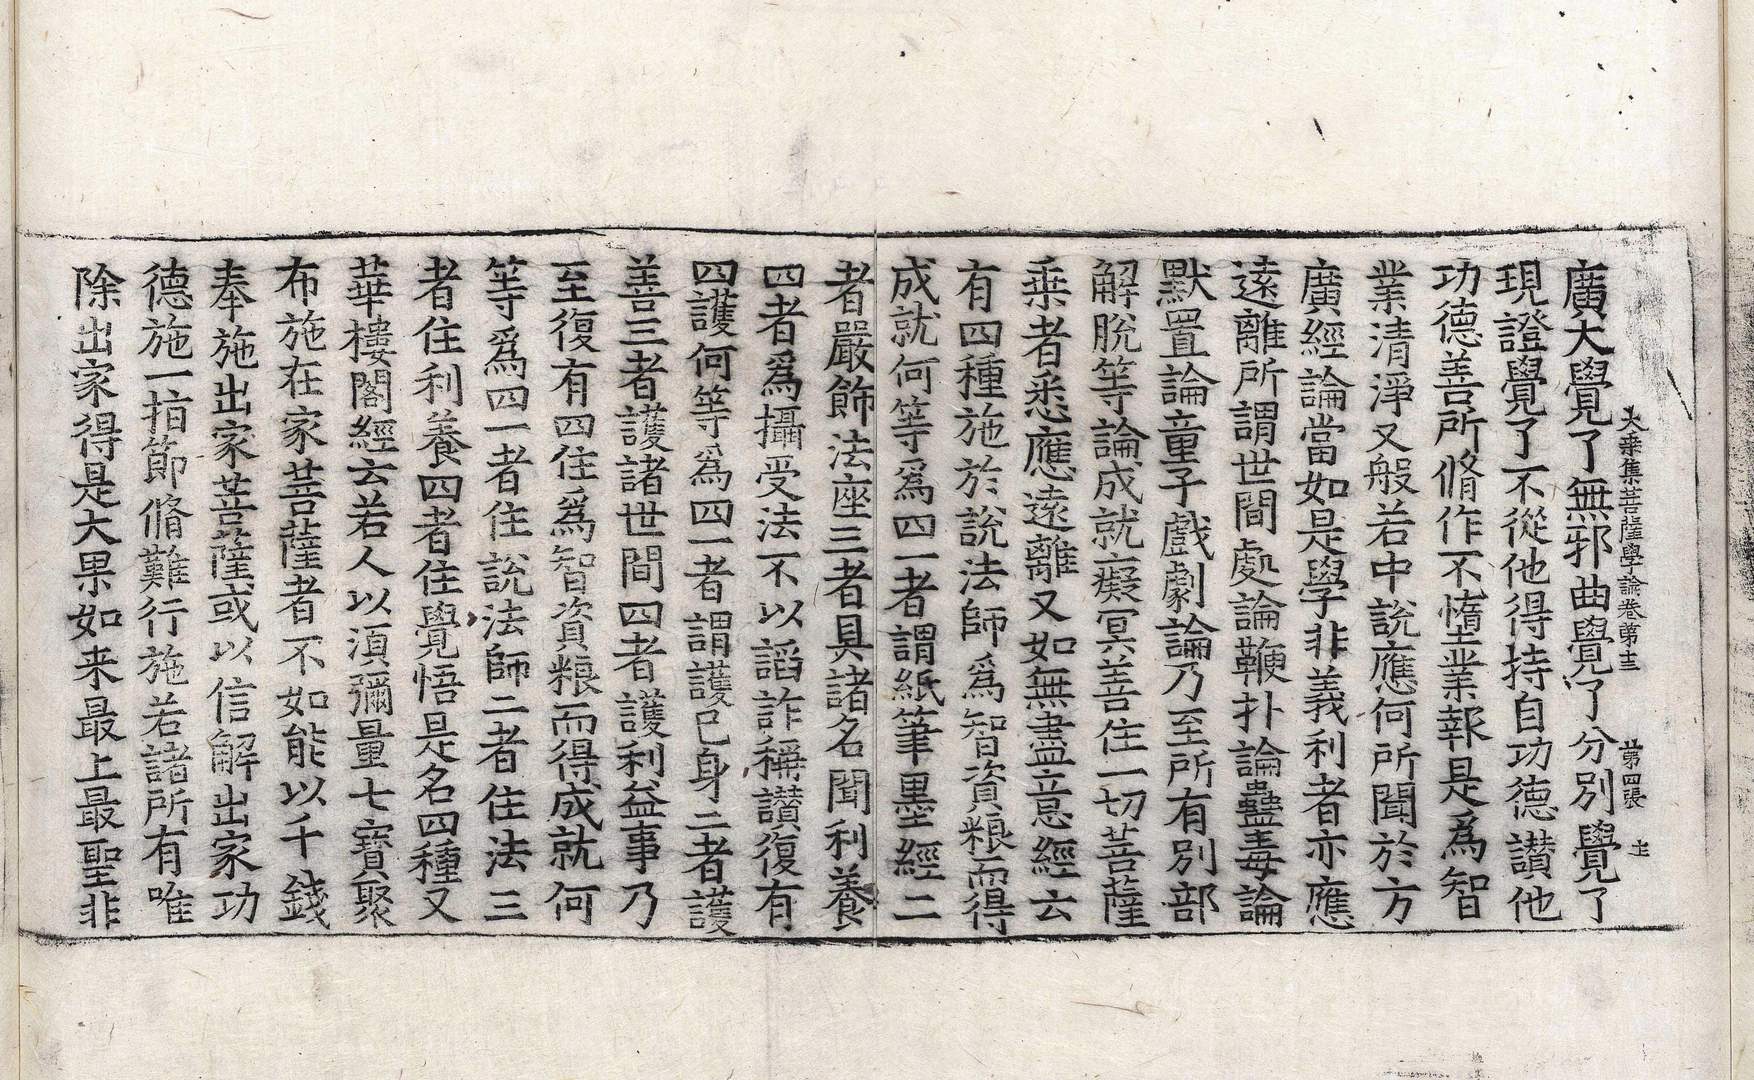 大乗集菩薩學論卷第圭 第四張 圭
廣大覺了無邪曲覺了分別覺了
現證覺了不從他得持自功德讃他
功德善所脩作不惰業報是爲智
業清淨又般若中說應何所聞於方
廣經論當如是學非義利者亦應
遠離所謂世間處論鞭扑論蠱毒論
默置論童子戲劇論乃至所有別部
解脫等論成就癡冥善住一切菩薩
乗者悉應遠離又如無盡意經云
有四種施於說法師爲智資粮而得
成就何等爲四一者謂紙筆墨經二
者嚴飾法座三者具諸名聞利養
四者爲攝受法不以謟詐稱讃復有
四護何等爲四一者謂護已身二者護
善三者護諸世間四者護利益事乃
至復有四住爲智資粮而得成就何
等爲四一者住說法師二者住法三
者住利養四者住覺悟是名四種又
華樓閣經云若人以湏彌量七寶聚
布施在家菩薩者不如能以千錢
奉施出家菩薩或以信解出家功
德施一指節脩難行施若諸所有唯
除出家得是大果如来最上最聖非